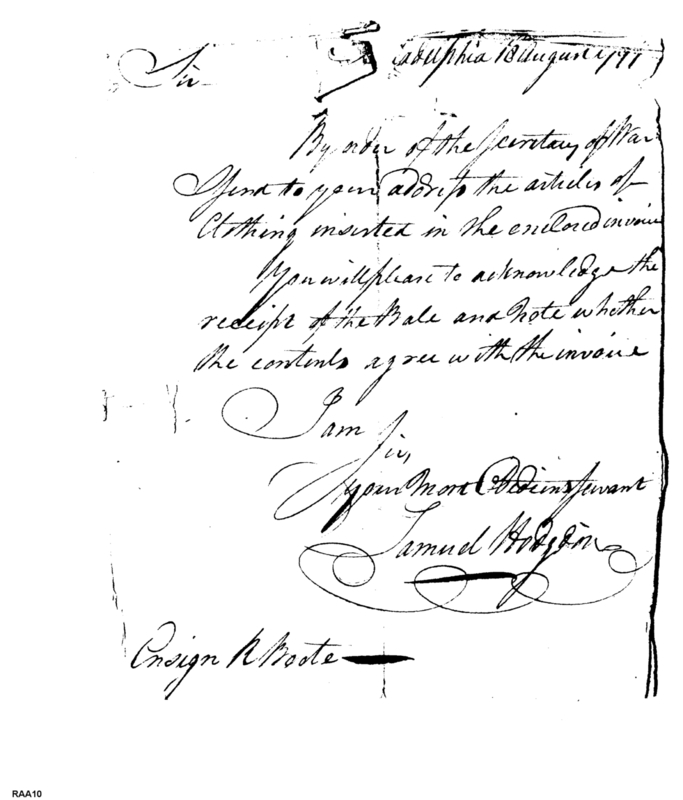 Sir
adelphia 18 August 1791
By order of the Secretary of War
I send to your address the articles of
Clothing inserted in the enclosed invoice
You will please to acknowledge the
receipt of the Bale and Note whether
the contents agree with the invoice
I am
Sir,
your most Obedient Servant
Samuel Hodgdon
Ensign R Boote
RAA10